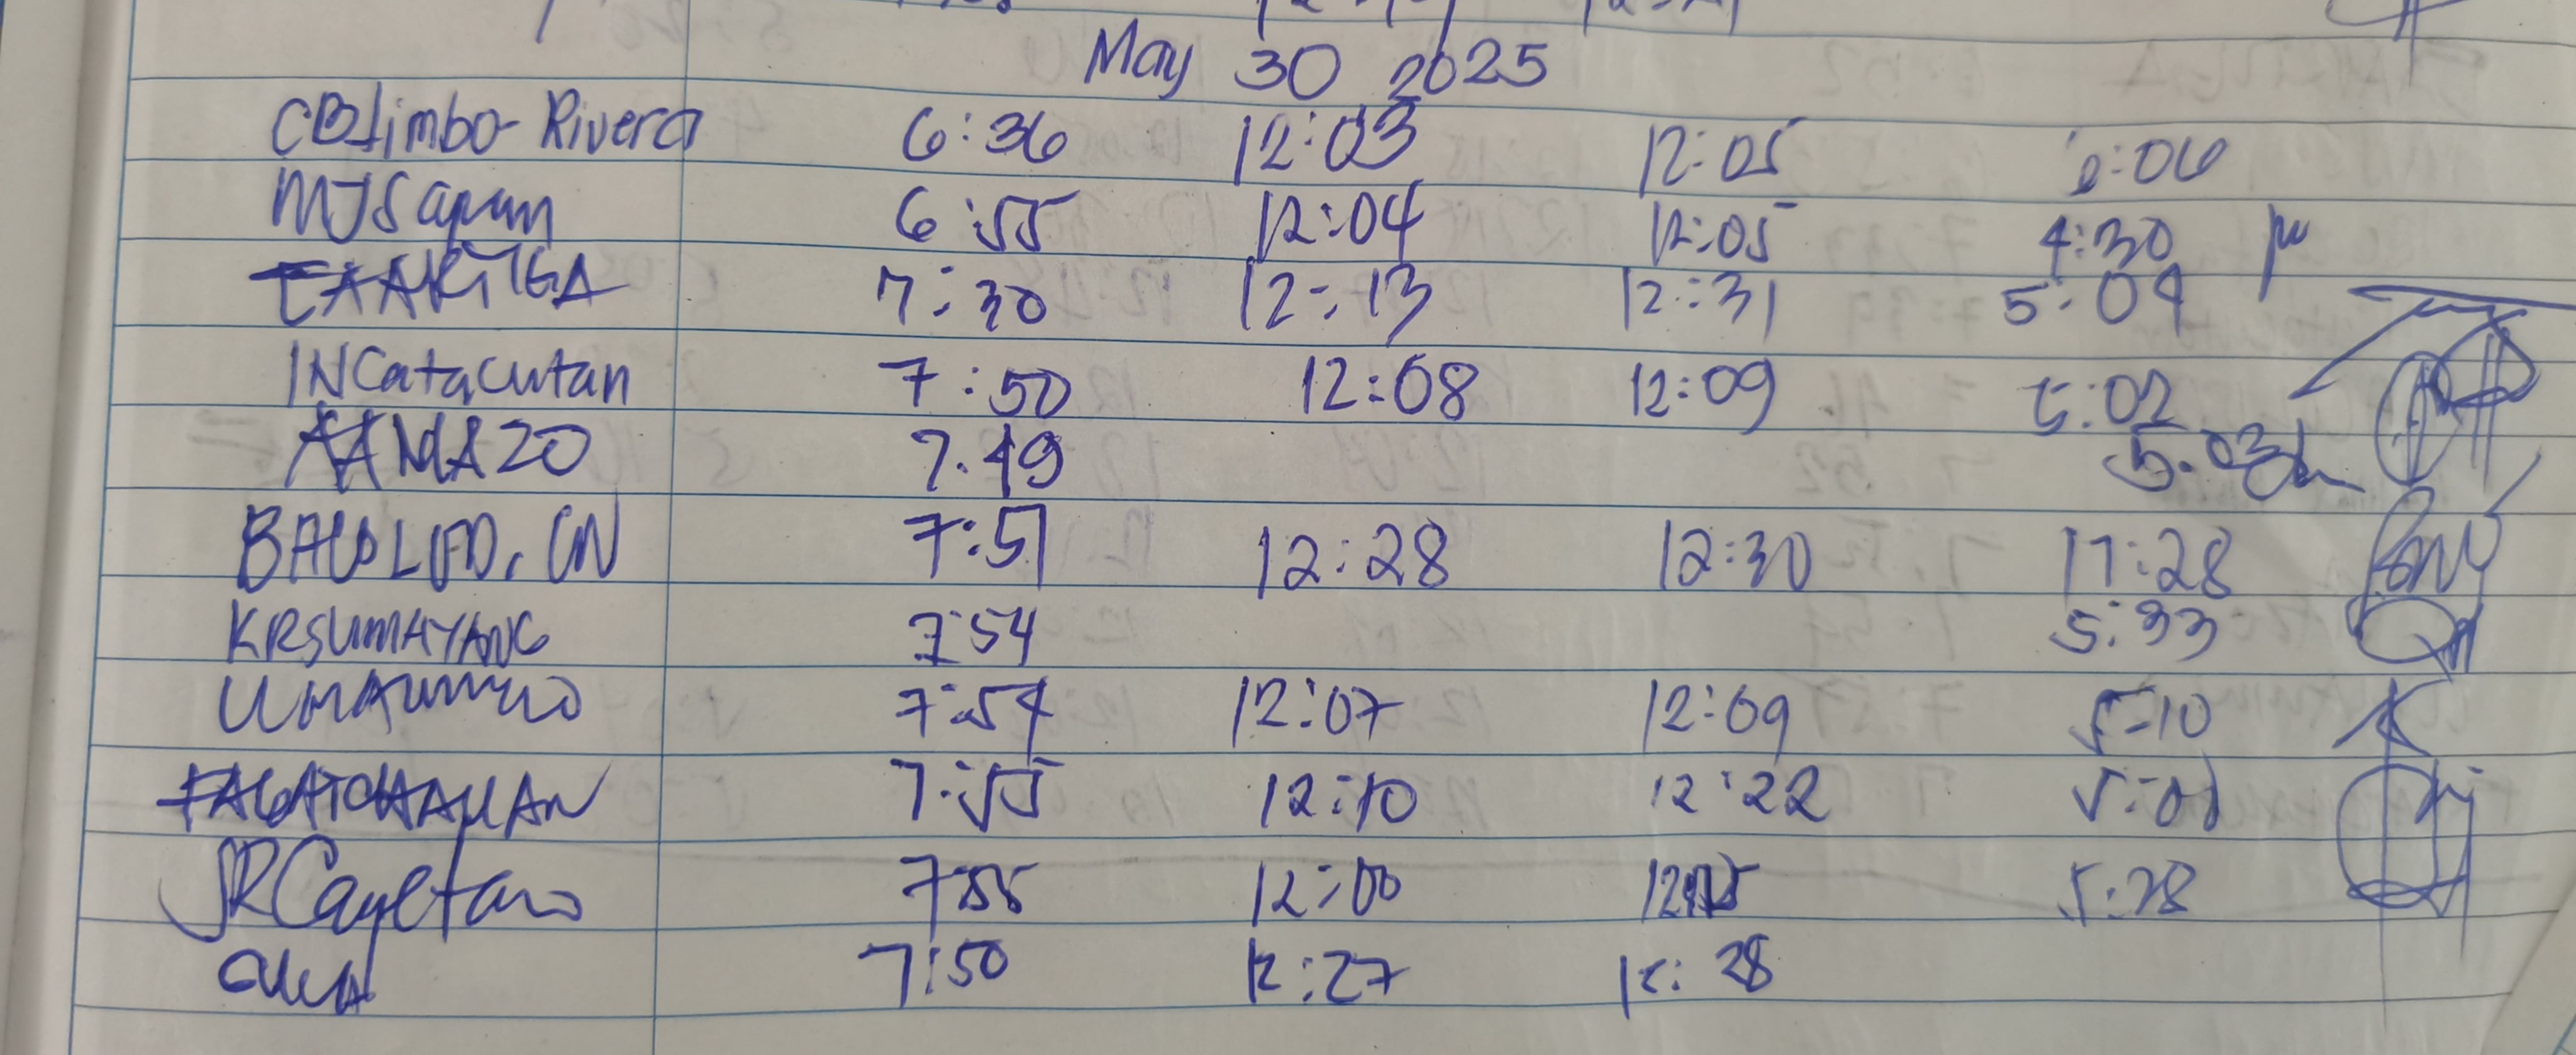 May 30 2025
CBJimbo-Rivera 6:36 12:03 12:05 :06
MJSapan 6:55 12:04 12:05 4:30
EAARTIGA 7:30 12:13 12:31 5:09
INCatacutan 7:50 12:08 12:09 5:02
7:49 5:03
7:51 12:28 12:30 17:28
KRSUMAYANG 7:54 5:33
7:54 12:07 12:09 5:10
7:55 12:10 12:22
JRCayetano 7:55 12:00 5:28
7:50 12:27 12:28